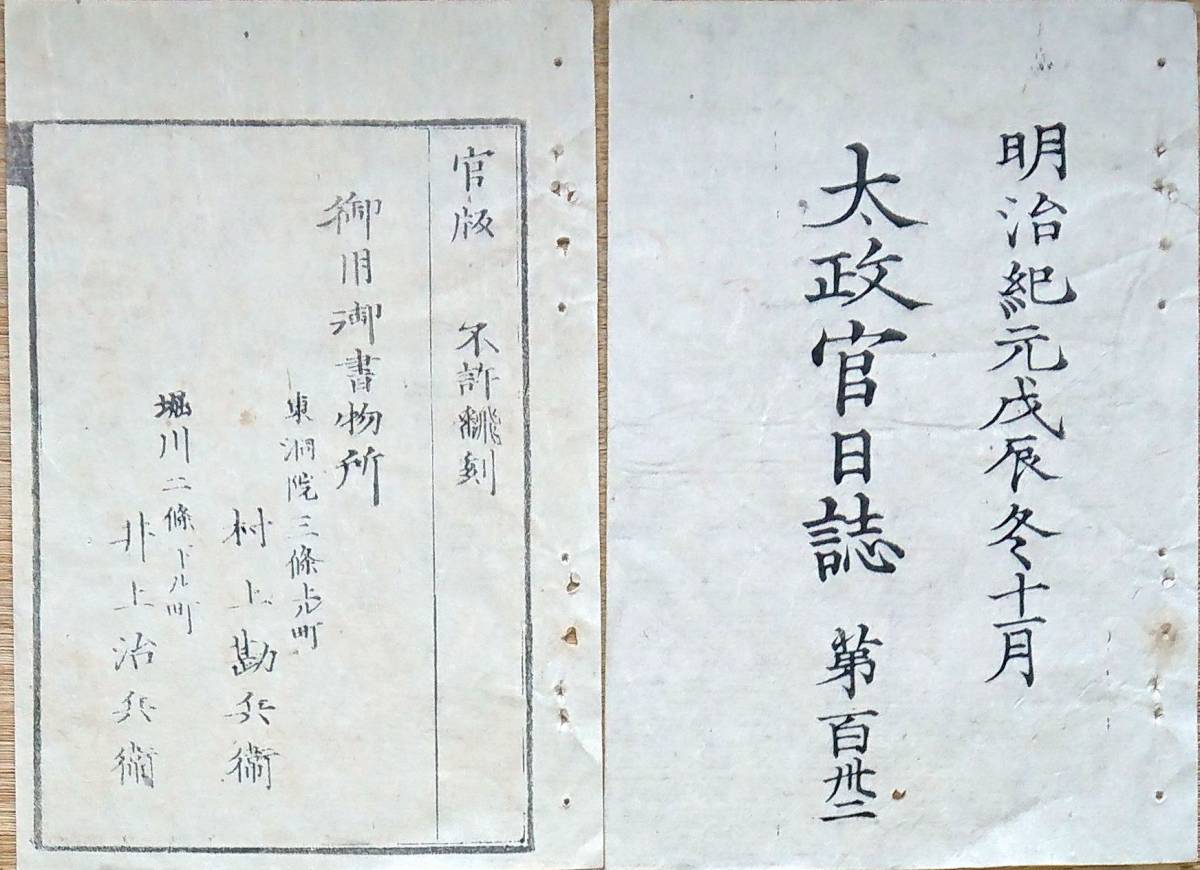 明治紀元戊辰冬十一月
太政官日誌 第百卅二
官版 不許翻刻
御用御書物所
東洞院三條上ル町
村上勘兵衛
堀川二條下ル町
井上治兵衛